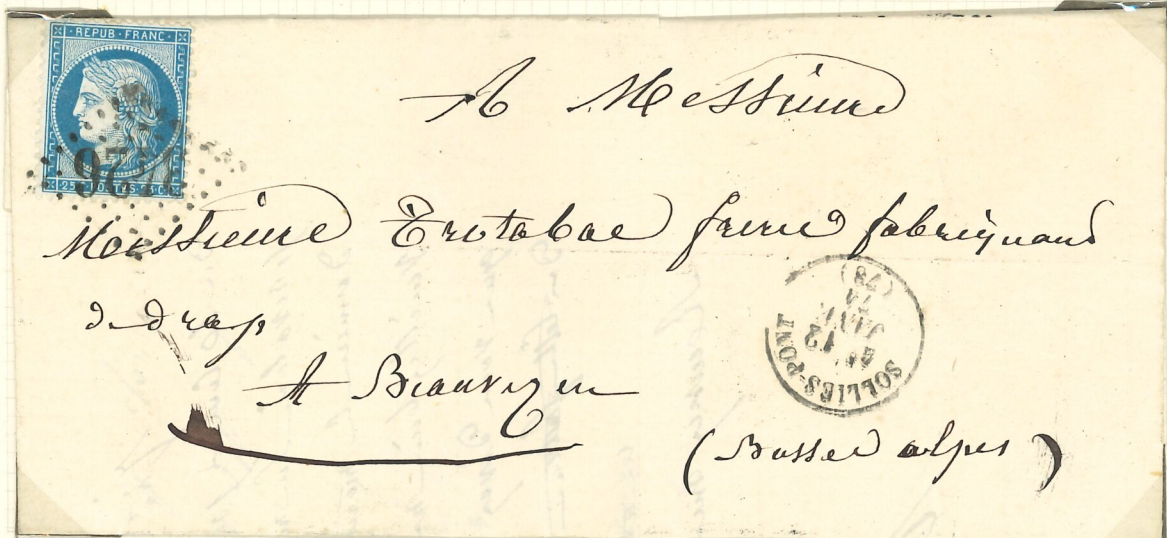 REPUB·FRANC·
25 ·POSTES· 25 C.
A Messieurs
Messieurs Trotabas freres fabriquant
de drap
A Beauvezer
(Basses alpes)
SOLLIES-PONT
12
JANV
74
(78)